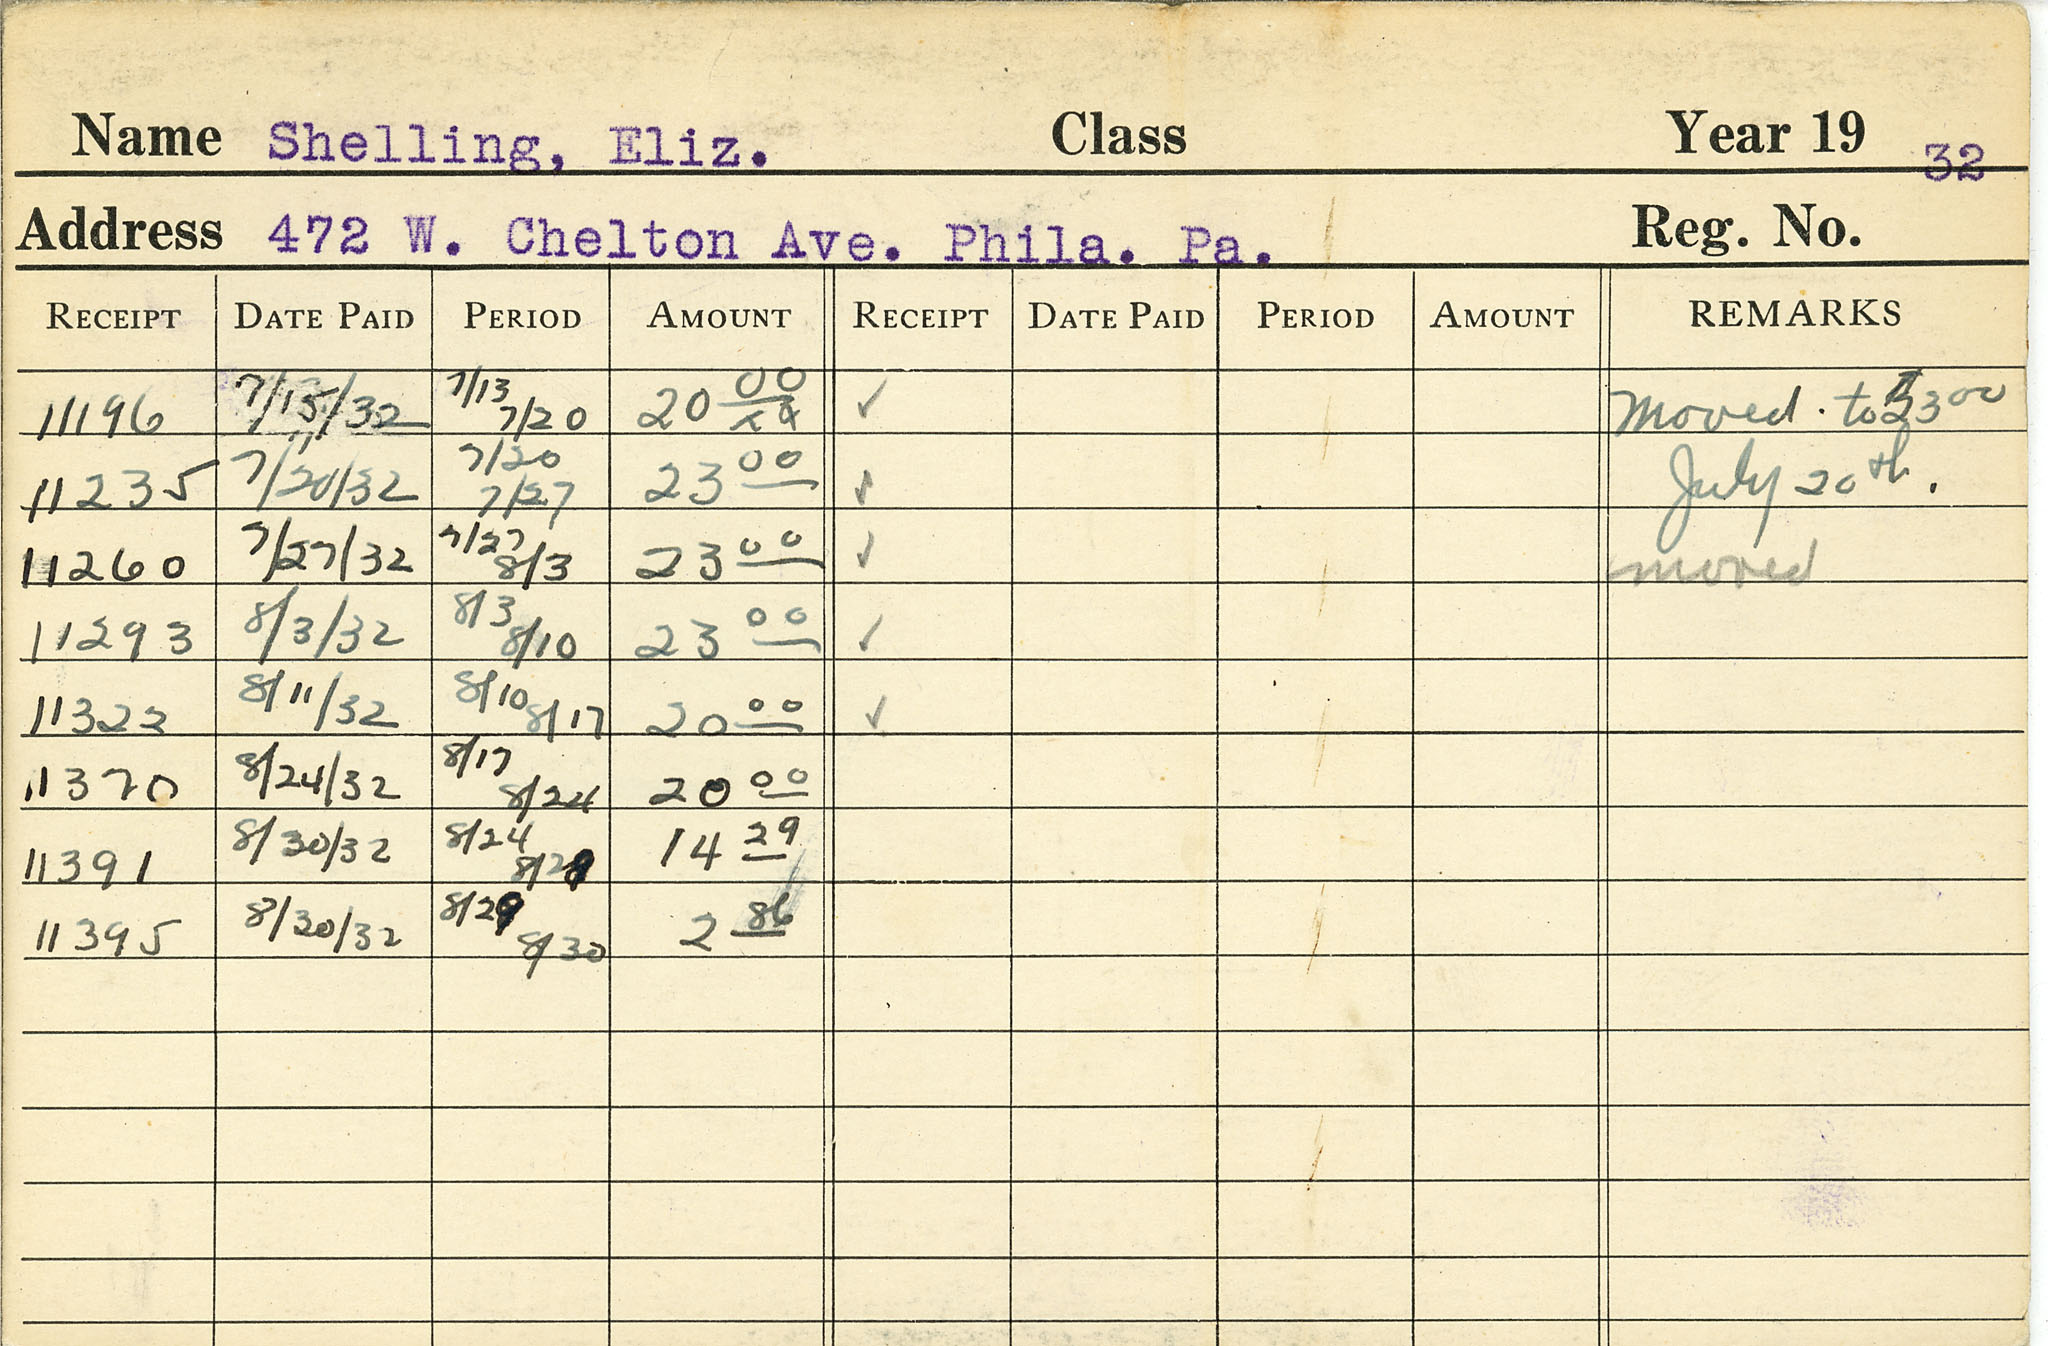 Name Shelling, Eliz. Class Year 19 32
Address 472 W. Chelton Ave. Phila. Pa. Reg. No.
RECEIPT DATE PAID PERIOD AMOUNT RECEIPT DATE PAID PERIOD AMOUNT REMARKS
11196 7/15/32 7/13 7/20 20 00 ✓ Moved to 23 00
11235 7/20/32 7/20 7/27 23 00 ✓ July 20th.
11260 7/27/32 7/27 8/3 23 00 ✓ moved
11293 8/3/32 8/3 8/10 23 00 ✓
11322 8/11/32 8/10 8/17 20 00 ✓
11370 8/24/32 8/17 8/24 20 00
11391 8/30/32 8/24 8/29 14 29
11395 8/30/32 8/29 8/30 2 86